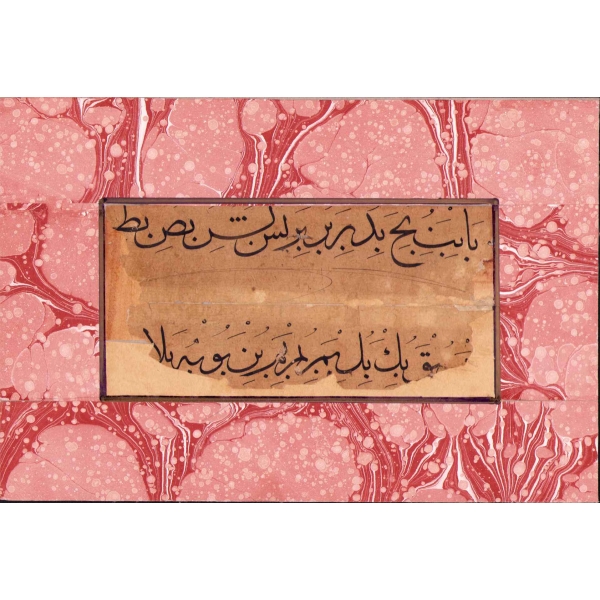 با بب بج بد بر بر بس بص بط
بق بك بل بم بم بن بو به بلا